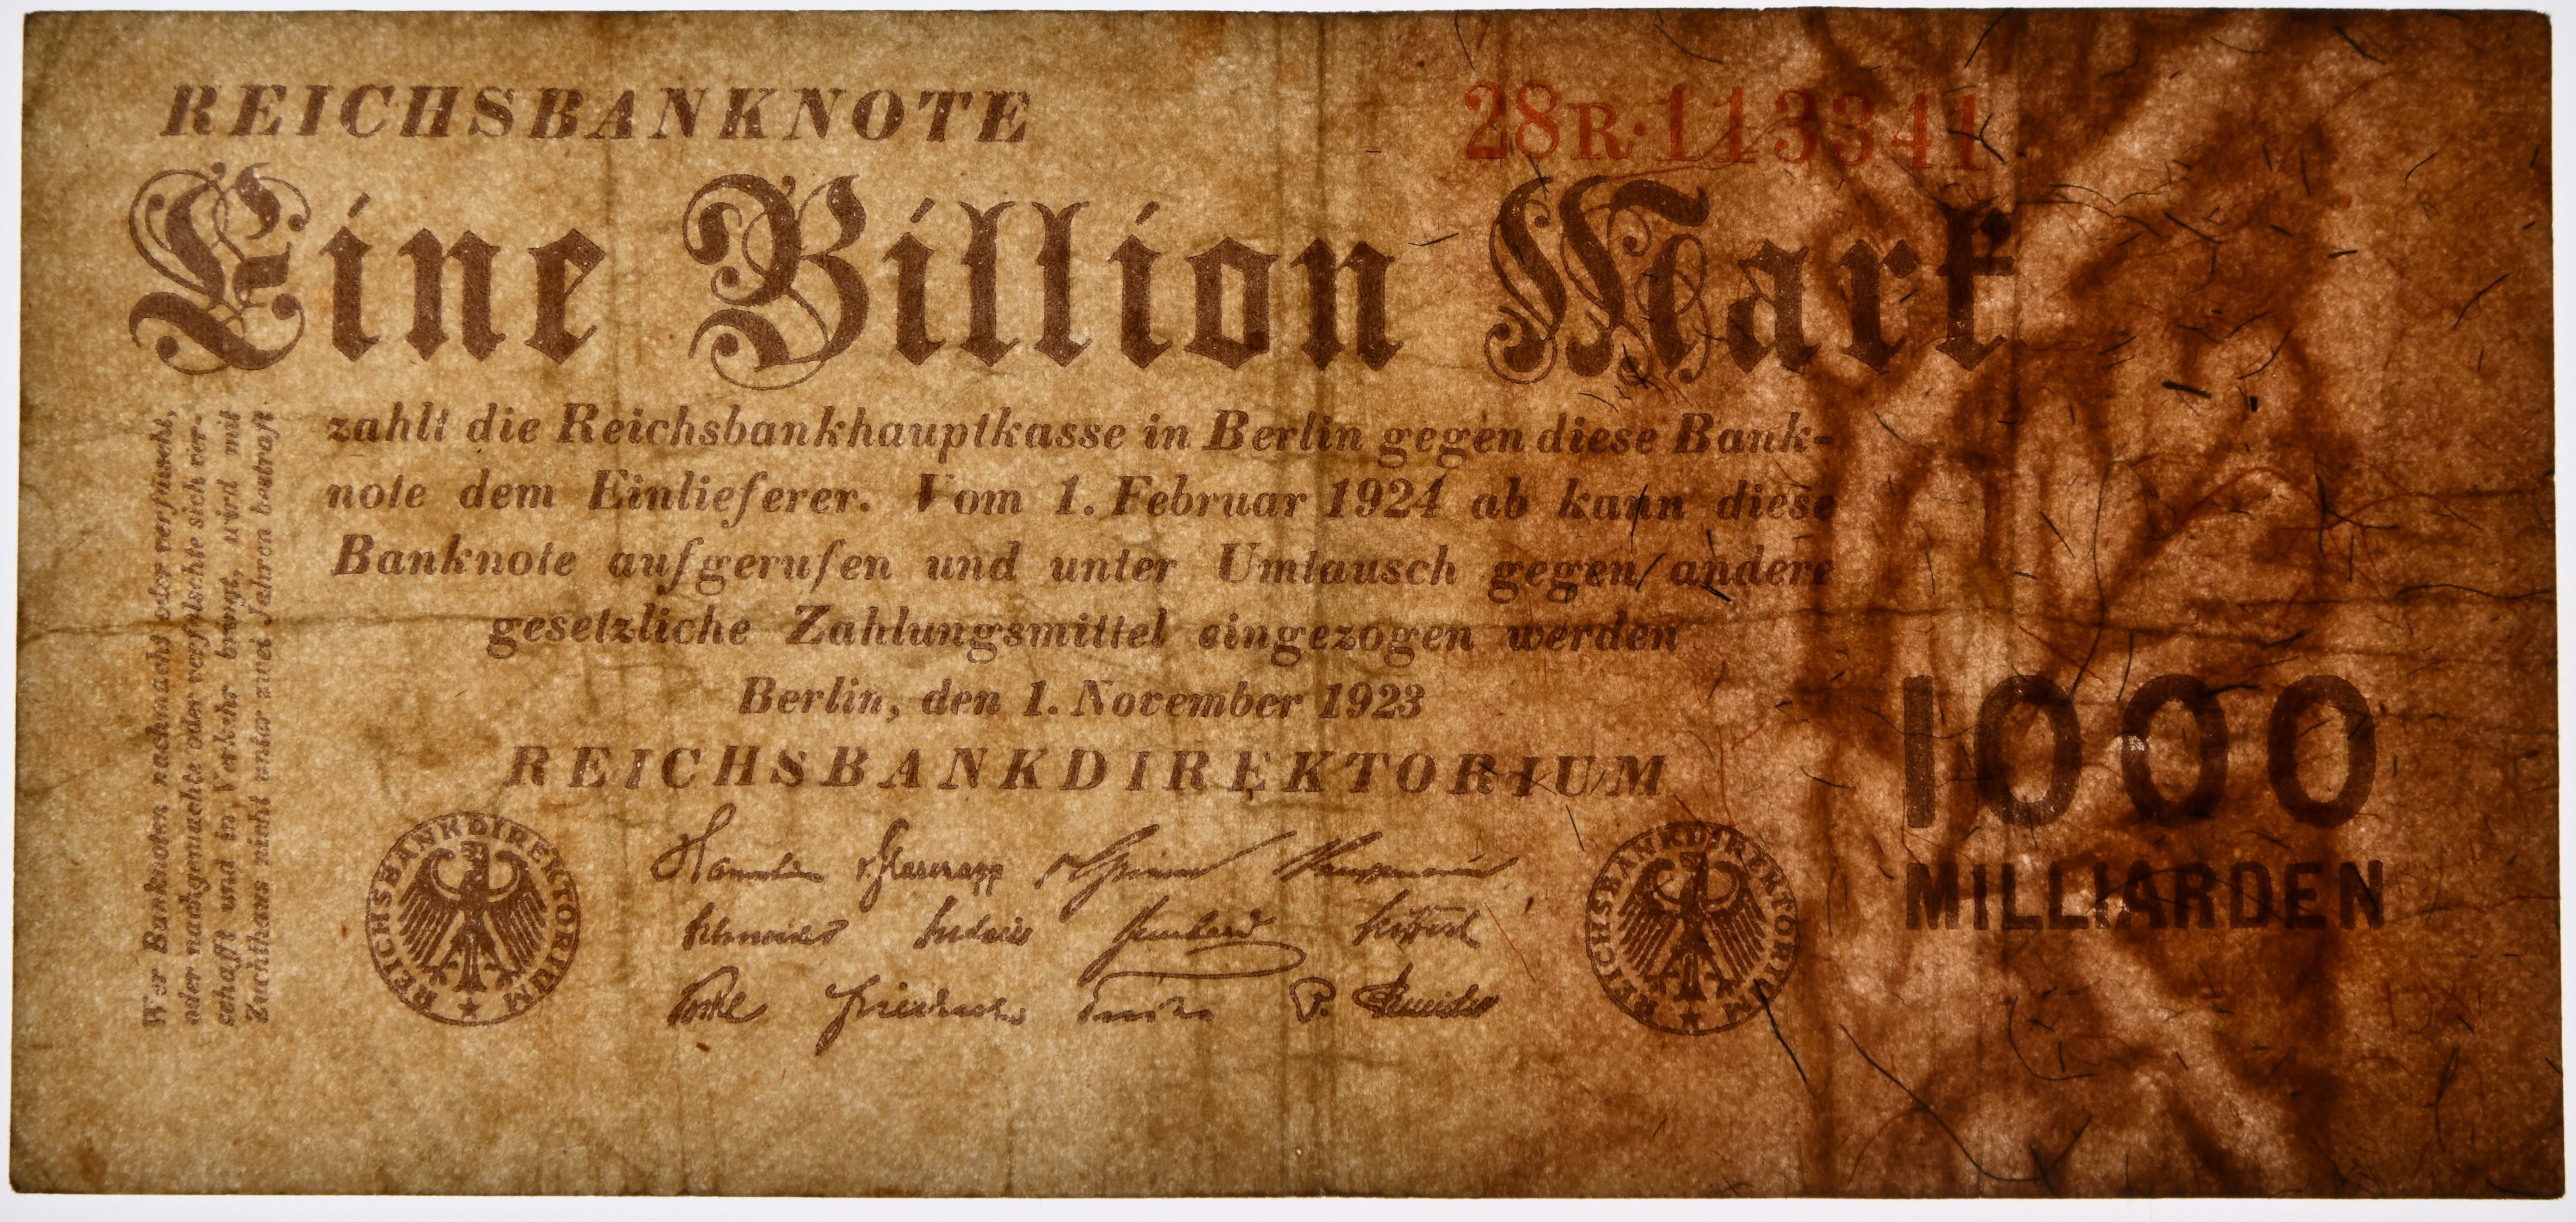 REICHSBANKNOTE
28R·113341
Eine Billion Mark
zahlt die Reichsbankhauptkasse in Berlin gegen diese Bank-
note dem Einlieferer. Vom 1. Februar 1924 ab kann diese
Banknote aufgerufen und unter Umtausch gegen andere
gesetzliche Zahlungsmittel eingezogen werden
Berlin, den 1. November 1923
REICHSBANKDIREKTORIUM
Wer Banknoten nachmacht oder verfälscht,
oder nachgemachte oder verfälschte sich ver-
schafft und in Verkehr bringt, wird mit
Zuchthaus nicht unter zwei Jahren bestraft
REICHSBANKDIREKTORIUM
REICHSBANKDIREKTORIUM
1000
MILLIARDEN